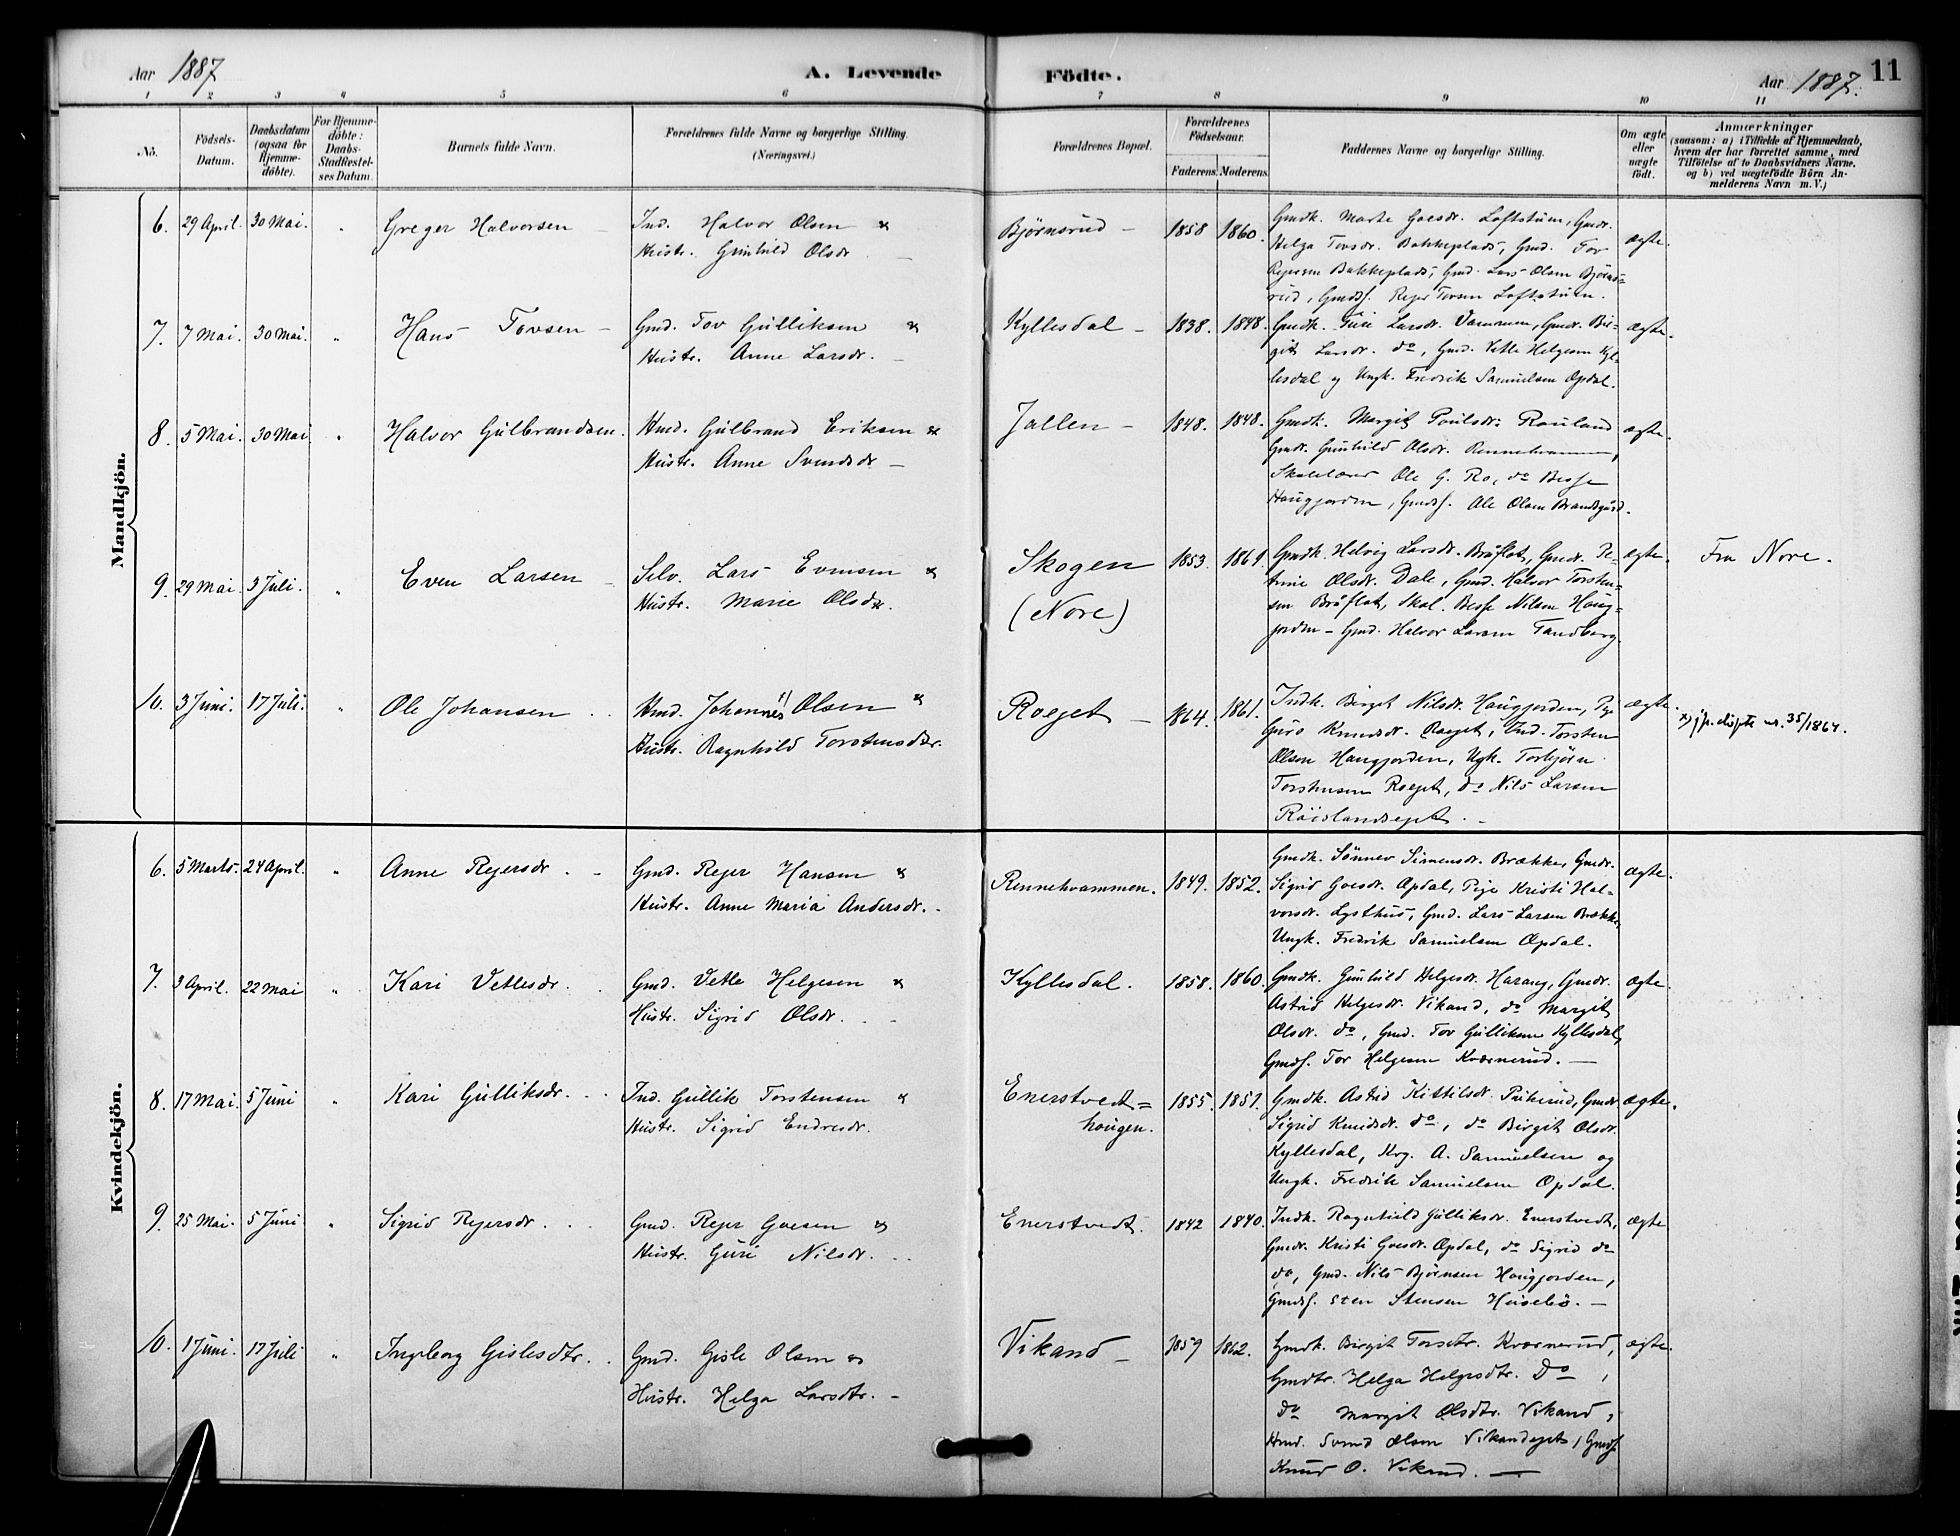 Aar 1887
A. Levende Födte.
Aar 1887. 11
1 2 3 4 5 6 7 8 9 10 11
No.
Födsels-Datum.
Daabsdatum (ogsaa for Hjemmedöbte).
For Hjemmedöbte: Daabs-Stadfæstelses Datum.
Barnets fulde Navn.
Forældrenes fulde Navne og borgerlige Stilling. (Næringsvei.)
Forældrenes Bopæl.
Forældrenes Födselsaar.
Faderens. Moderens.
Faddernes Navne og borgerlige Stilling.
Om ægte eller uægte födt.
Anmærkninger (saasom: a) i Tilfælde af Hjemmedaab, hvem der har forrettet samme, med Tilföielse af to Daabsvidners Navne, og b) ved uægtefödte Börn Anmelderens Navn m. V.)
Mandkjön.
6. 29 April. 30 Mai. " Greger Halvorsen – Ind. Halvor Olsen &
Hustr. Gunhild Olsdr. –
Bjørnsrud – 1858 1860.
Gmdk. Marte Goesdr. Loftstuen, Gmdr.
Helga Torsdr. Bakkeplads, Gmd. Tor
Rejersen Bakkeplads, Gmd. Lars Olsen Bjørns=
rud, Gmdsf. Rejer Torsen Loftstuen.
ægte.
7. 7 Mai. 30 Mai. " Hans Tovsen – Gmd. Tov Gulliksen &
Hustr. Anne Larsdr. –
Kyllesdal – 1838. 1848.
Gmdk. Turi Larsdr. Gmdr. Bir=
git Larsdr. do, Gmd. Vetle Helgesen Kyl=
lesdal og Ungk. Fredrik Samuelsen Opdal.
ægte.
8. 5 Mai. 30 Mai " Halvor Gulbrandsen. Hmd. Gulbrand Eriksen &
Hustr. Anne Svendsdr –
Jallen – 1848. 1848.
Gmdk. Margit Poulsdr. Rauland
Gmdr. Gunhild Olsdr. Rennehvammen,
Skolelærer Ole G. Ro, do Besse
Haugjorden, Gmdsf. Ole Olsen Brandsgård.
ægte.
9. 29 Mai. 3 Juli. " Even Larsen – Selv. Lars Evensen &
Hustr. Marie Olsdr.
Skogen
(Nore)
1853. 1861.
Gmdk. Helvig Larsdr. Bråflot, Gmdr. Pe=
trine Olsdr. Dale, Gmd. Halvor Torsten=
sen Bråflot, Skol. Besse Nilsen Haug=
jorden – Gmd. Halvor Larsen Tandberg.
ægte. Fra Nore.
10. 3 Juni. 17 Juli. " Ole Johansen . . Hmd. Johannes x) Olsen &
Hustr. Ragnhild Torstensdtr.
Roeget – 1864. 1861.
Indk. Birget Nilsdr. Haugjorden, Pige
Guro Knudsdr. Roeget, Ind. Torsten
Olsen Haugjorden, Ugk. Torbjörn
Torstensen Roeget, do Nils Larsen
Röislandseget. –
ægte. x) jfr. døpte nr. 35/1864.
Kvindekjön.
6. 5 Marts. 24 April. " Anne Rejersdr . – Gmd. Rejer Hansen &
Hustr. Anne Maria Andersdr. .
Rennehvammen. 1849. 1852.
Gmdk. Sönnev Simensdr. Brække, Gmdr.
Sigrid Goesdr. Opdal, Pige Kristi Hal=
vorsdr. Lysthus, Gmd. Lars Larsen Brække,
Ungk. Fredrik Samuelsen Opdal.
ægte.
7. 3 April. 22 Mai " Kari Vetlesdr. . Gmd. Vetle Helgesen &
Hustr. Sigrid Olsdr. . –
Kyllesdal. 1858. 1860.
Gmdk. Gunhild Helgesdr. Gmdr.
Astrid Helgesdr. Vikand, do Margit
Olsdr. do, Gmd. Tov Gulliksen Kyllesdal,
Gmdsf. Tor Helgesen Kværnerud. –
ægte.
8. 17 Mai. 5 Juni " Kari Gulliksdr. . . Ind. Gullik Torstensen &
Hustr. Sigrid Endresdr.
Enerstvedt=
haugen.
1855. 1851.
Gmdk. Astrid Kittilsdr. Prikerud, Gmdr.
Sigrid Knudsdr. do, do Birgit Olsdr.
Kyllesdal, Krg. A. Samuelsen og
Ungk. Fredrik Samuelsen Opdal.
ægte.
9. 25 Mai. 5 Juni " Sigrid Rejersdr. . . Gmd. Rejer Goesen &
Hustr. Guri Nilsdr. . .
Enerstvedt. 1842 1840.
Indk. Ragnhild Gulliksdr. Enerstvedt,
Gmdr. Kristi Goesdr. Opdal, do Sigrid do
do, Gmd. Nils Bjørnsen Haugjorden,
Gmdsf. Sten Stensen Husebö. –
ægte
10. 1 Juni. 17 Juli " Ingeborg Gislesdtr. . Gmd. Gisle Olsen &
Hustr. Helga Larsdtr. –
Vikand – 1859 1862.
Gmdk. Birgit Torsdtr. Kværnerud,
Gmdtr. Helga Helgesdtr. Do ,
do Margit Olsdtr. Vikand,
Hmd. Svend Olsen Vikandeget, Gmdsf.
Knud O. Vikand. –
ægte.